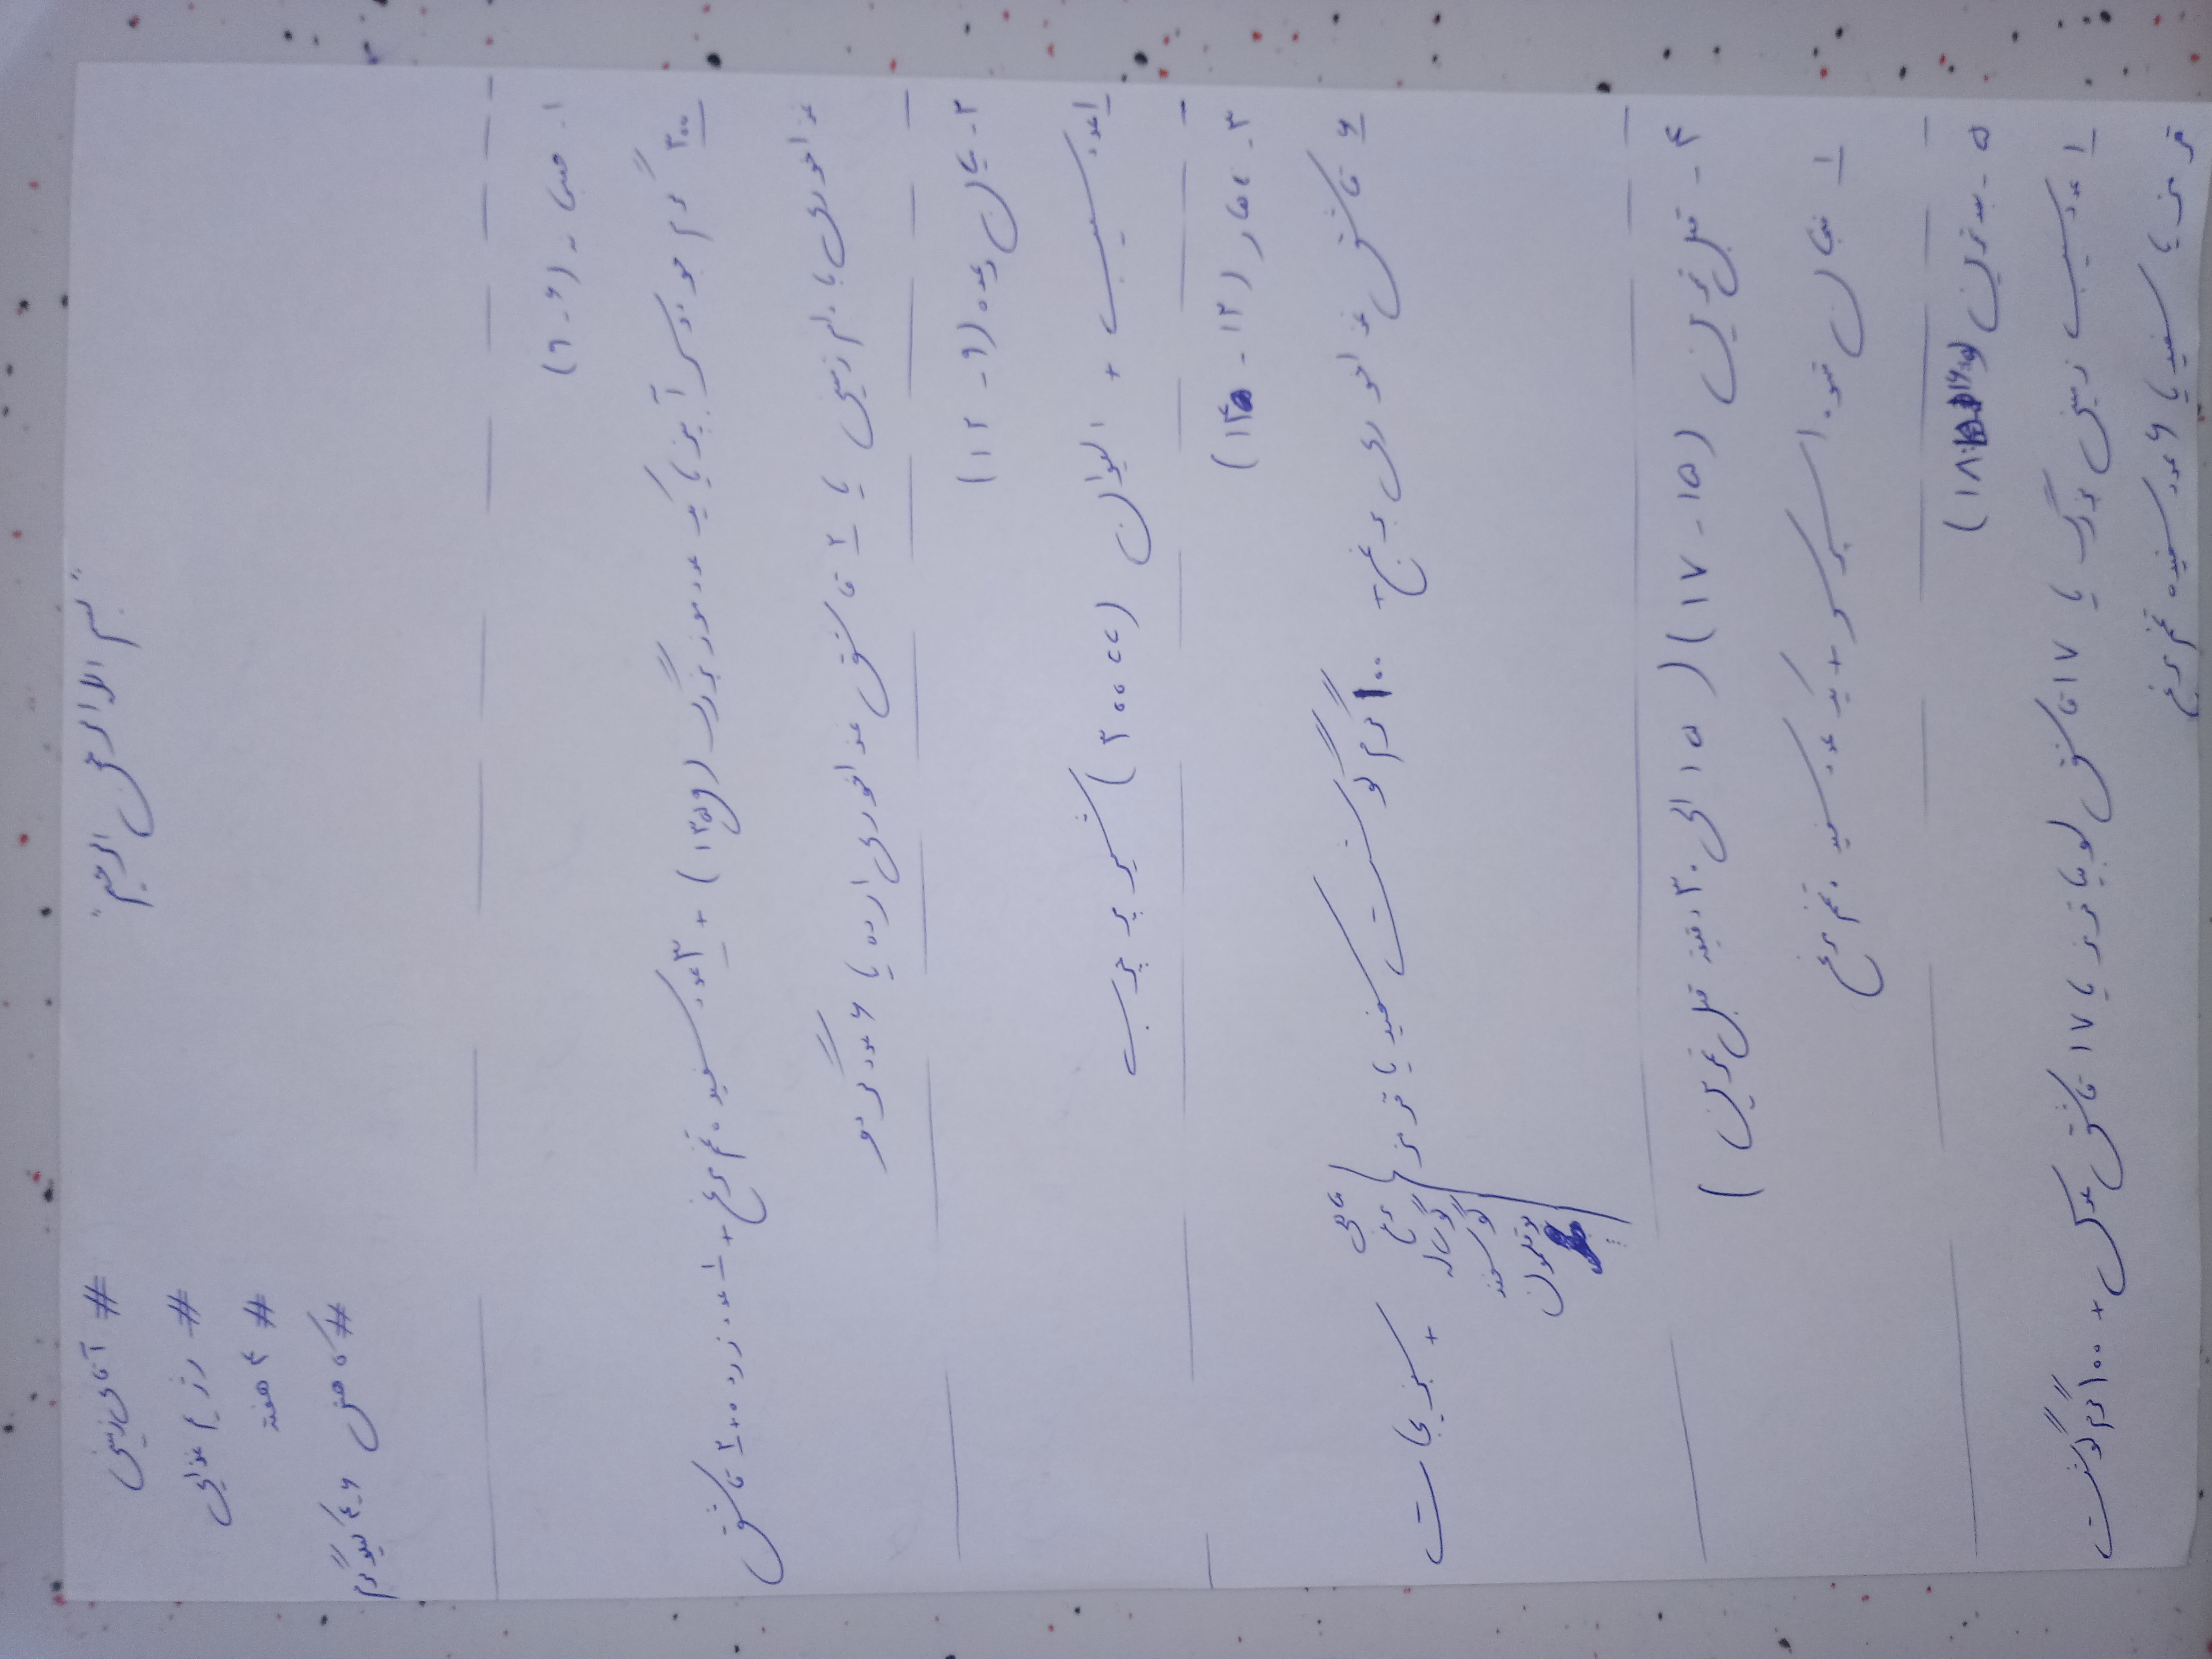 "بسم الله الرحمن الرحیم"
# آقای زمینی
# رژیم غذایی
# ۴ هفته
# کاهش ۴-۶ کیلوگرم
۱- صبحانه (۶-۹)
۳۰۰ گرم جو دوسر آبپز یا یک عدد موز بزرگ (۱۳۵g) + ۳ عدد سفیده تخم مرغ + ۱ عدد زرده + ۲ قاشق
غذاخوری بادام زمینی یا ۲ قاشق غذاخوری ارده یا ۶ عدد گردو
۲- میان وعده (۹-۱۲)
۱ عدد سیب + ۱ لیوان (۳۰۰cc) شیر پر چرب
۳- ناهار (۱۲-۱۴)
۶ قاشق غذاخوری برنج + ۱۰۰ گرم گوشت سفید یا قرمز
ماهی
مرغ
گوساله
گوسفند
بوقلمون
+ سبزیجات
۴- قبل تمرین (۱۵-۱۷) (۱۵ الی ۳۰ دقیقه قبل تمرین)
۱ فنجان قهوه اسپرسو + یک عدد سفیده تخم مرغ
۵- بعد تمرین
۱ عدد سیب زمینی بزرگ یا ۱۷ قاشق لوبیا قرمز یا ۱۷ قاشق عدس + ۱۰۰ گرم گوشت
قرمز یا سفید یا ۶ عدد سفیده تخم مرغ